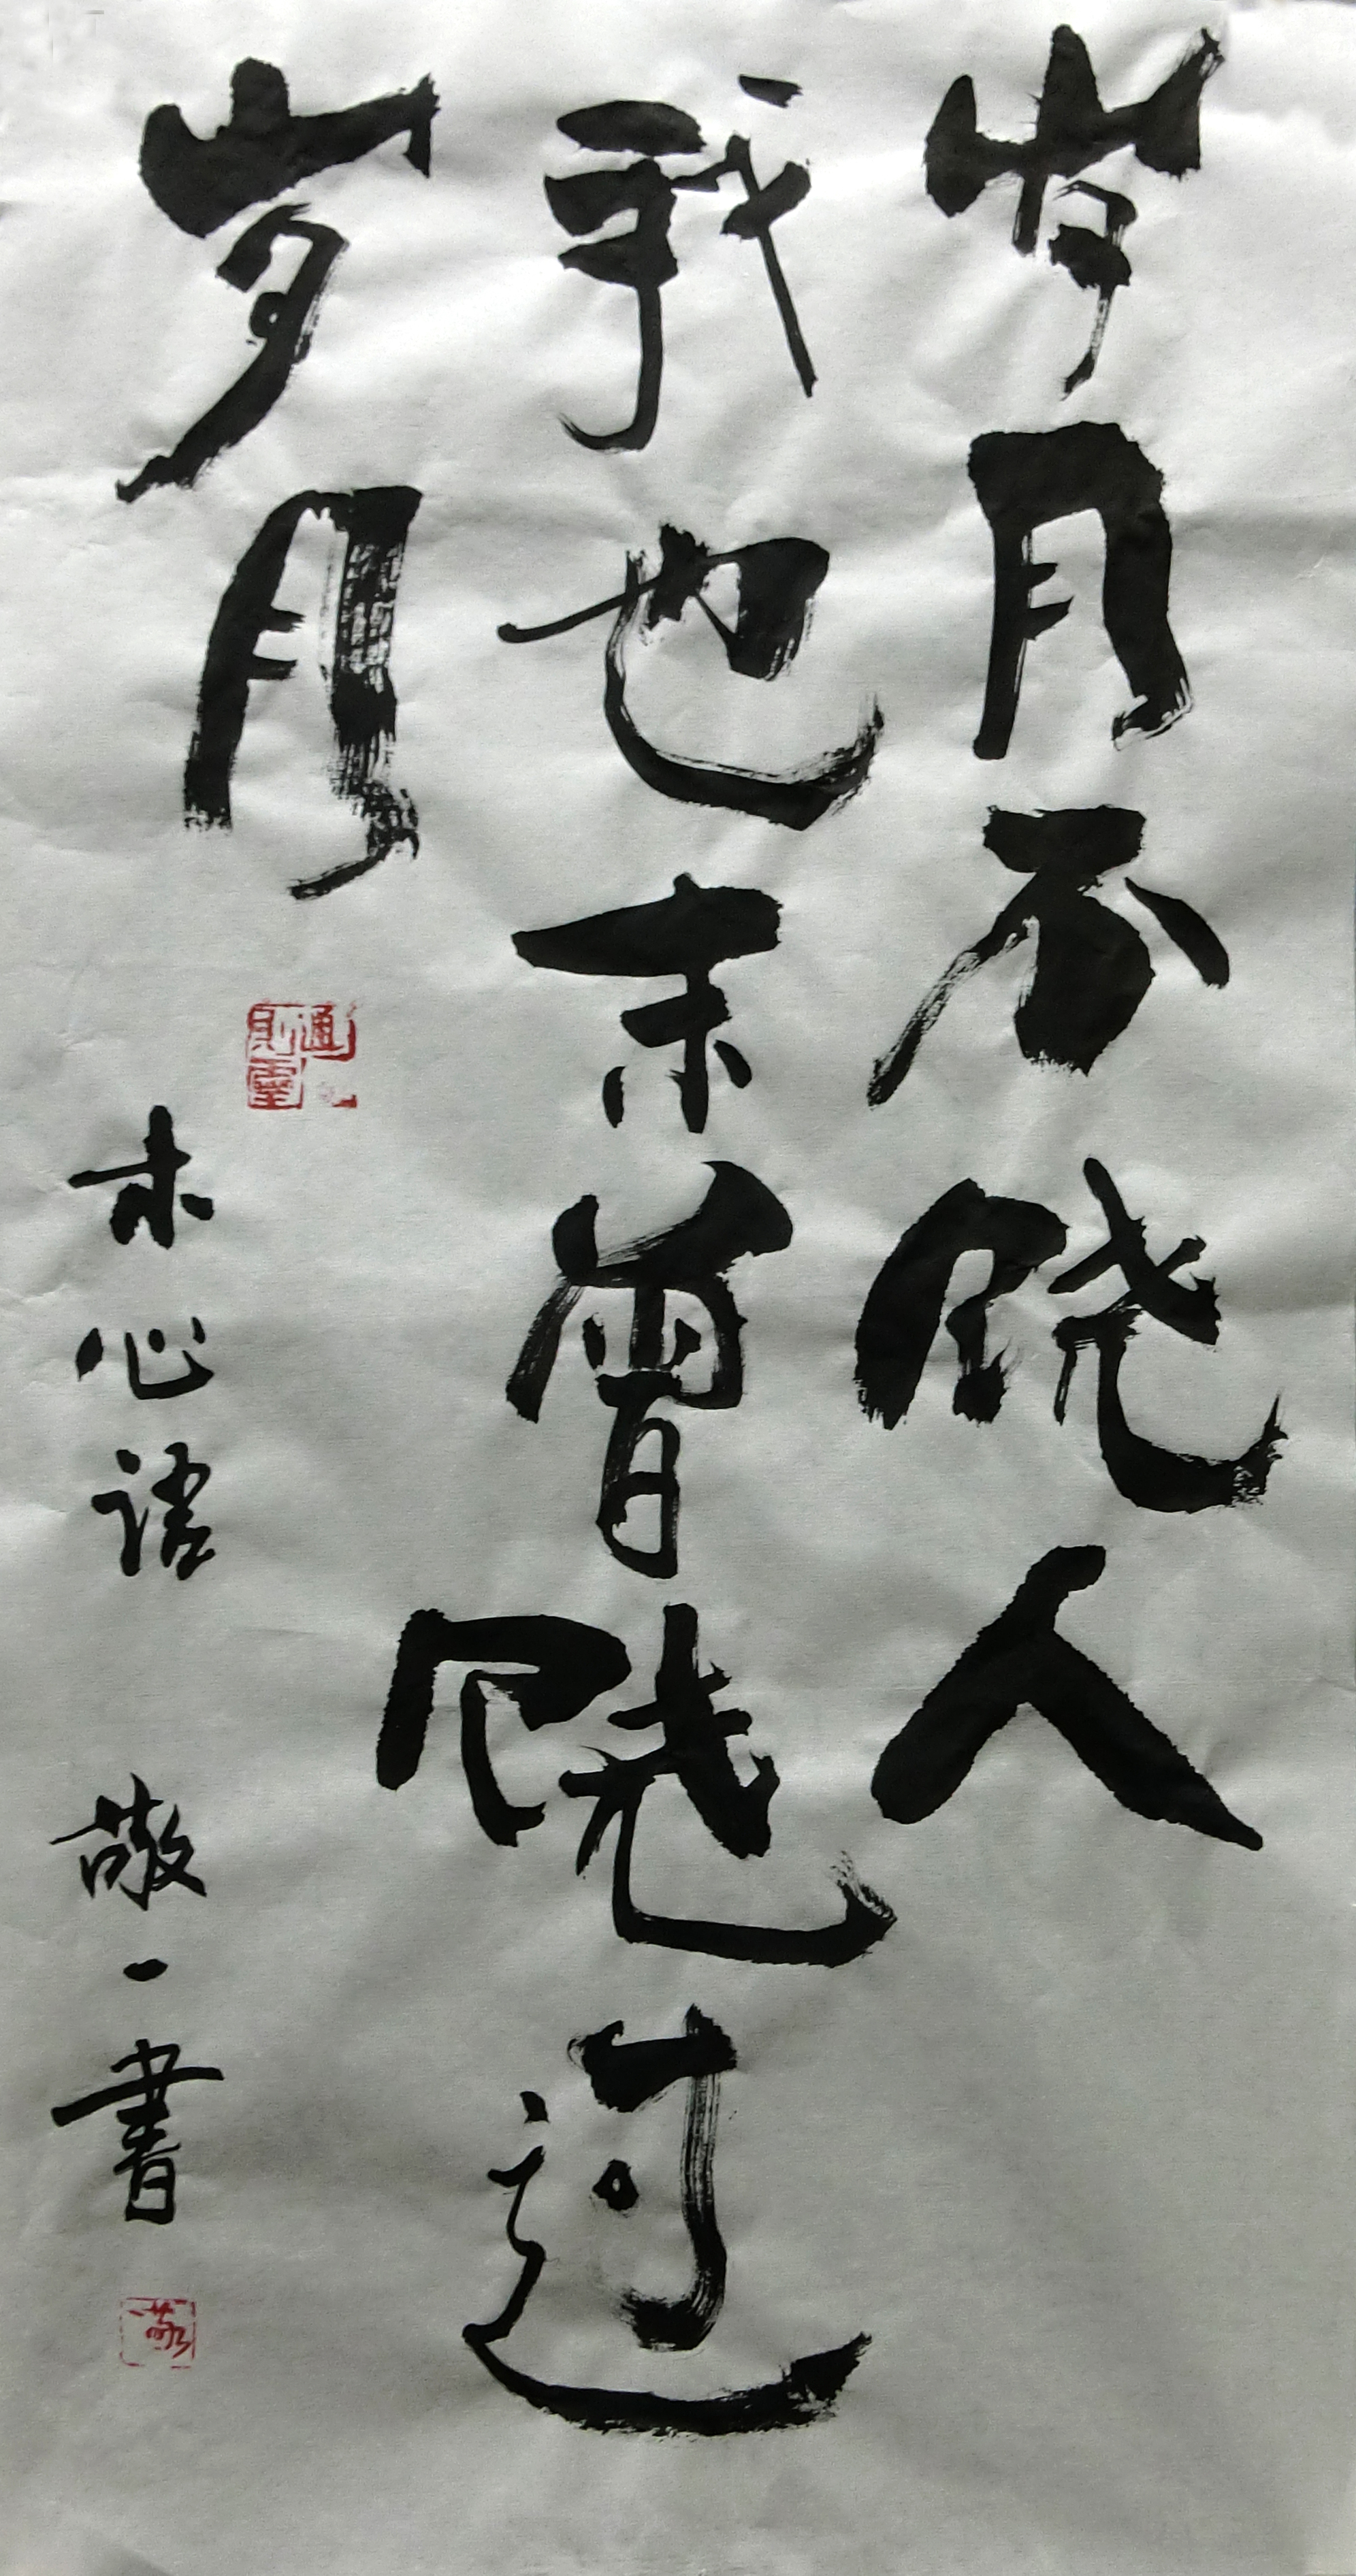 岁月不饶人
我也未曾饶过
岁月
木心语 敬一書
通則靈
敬